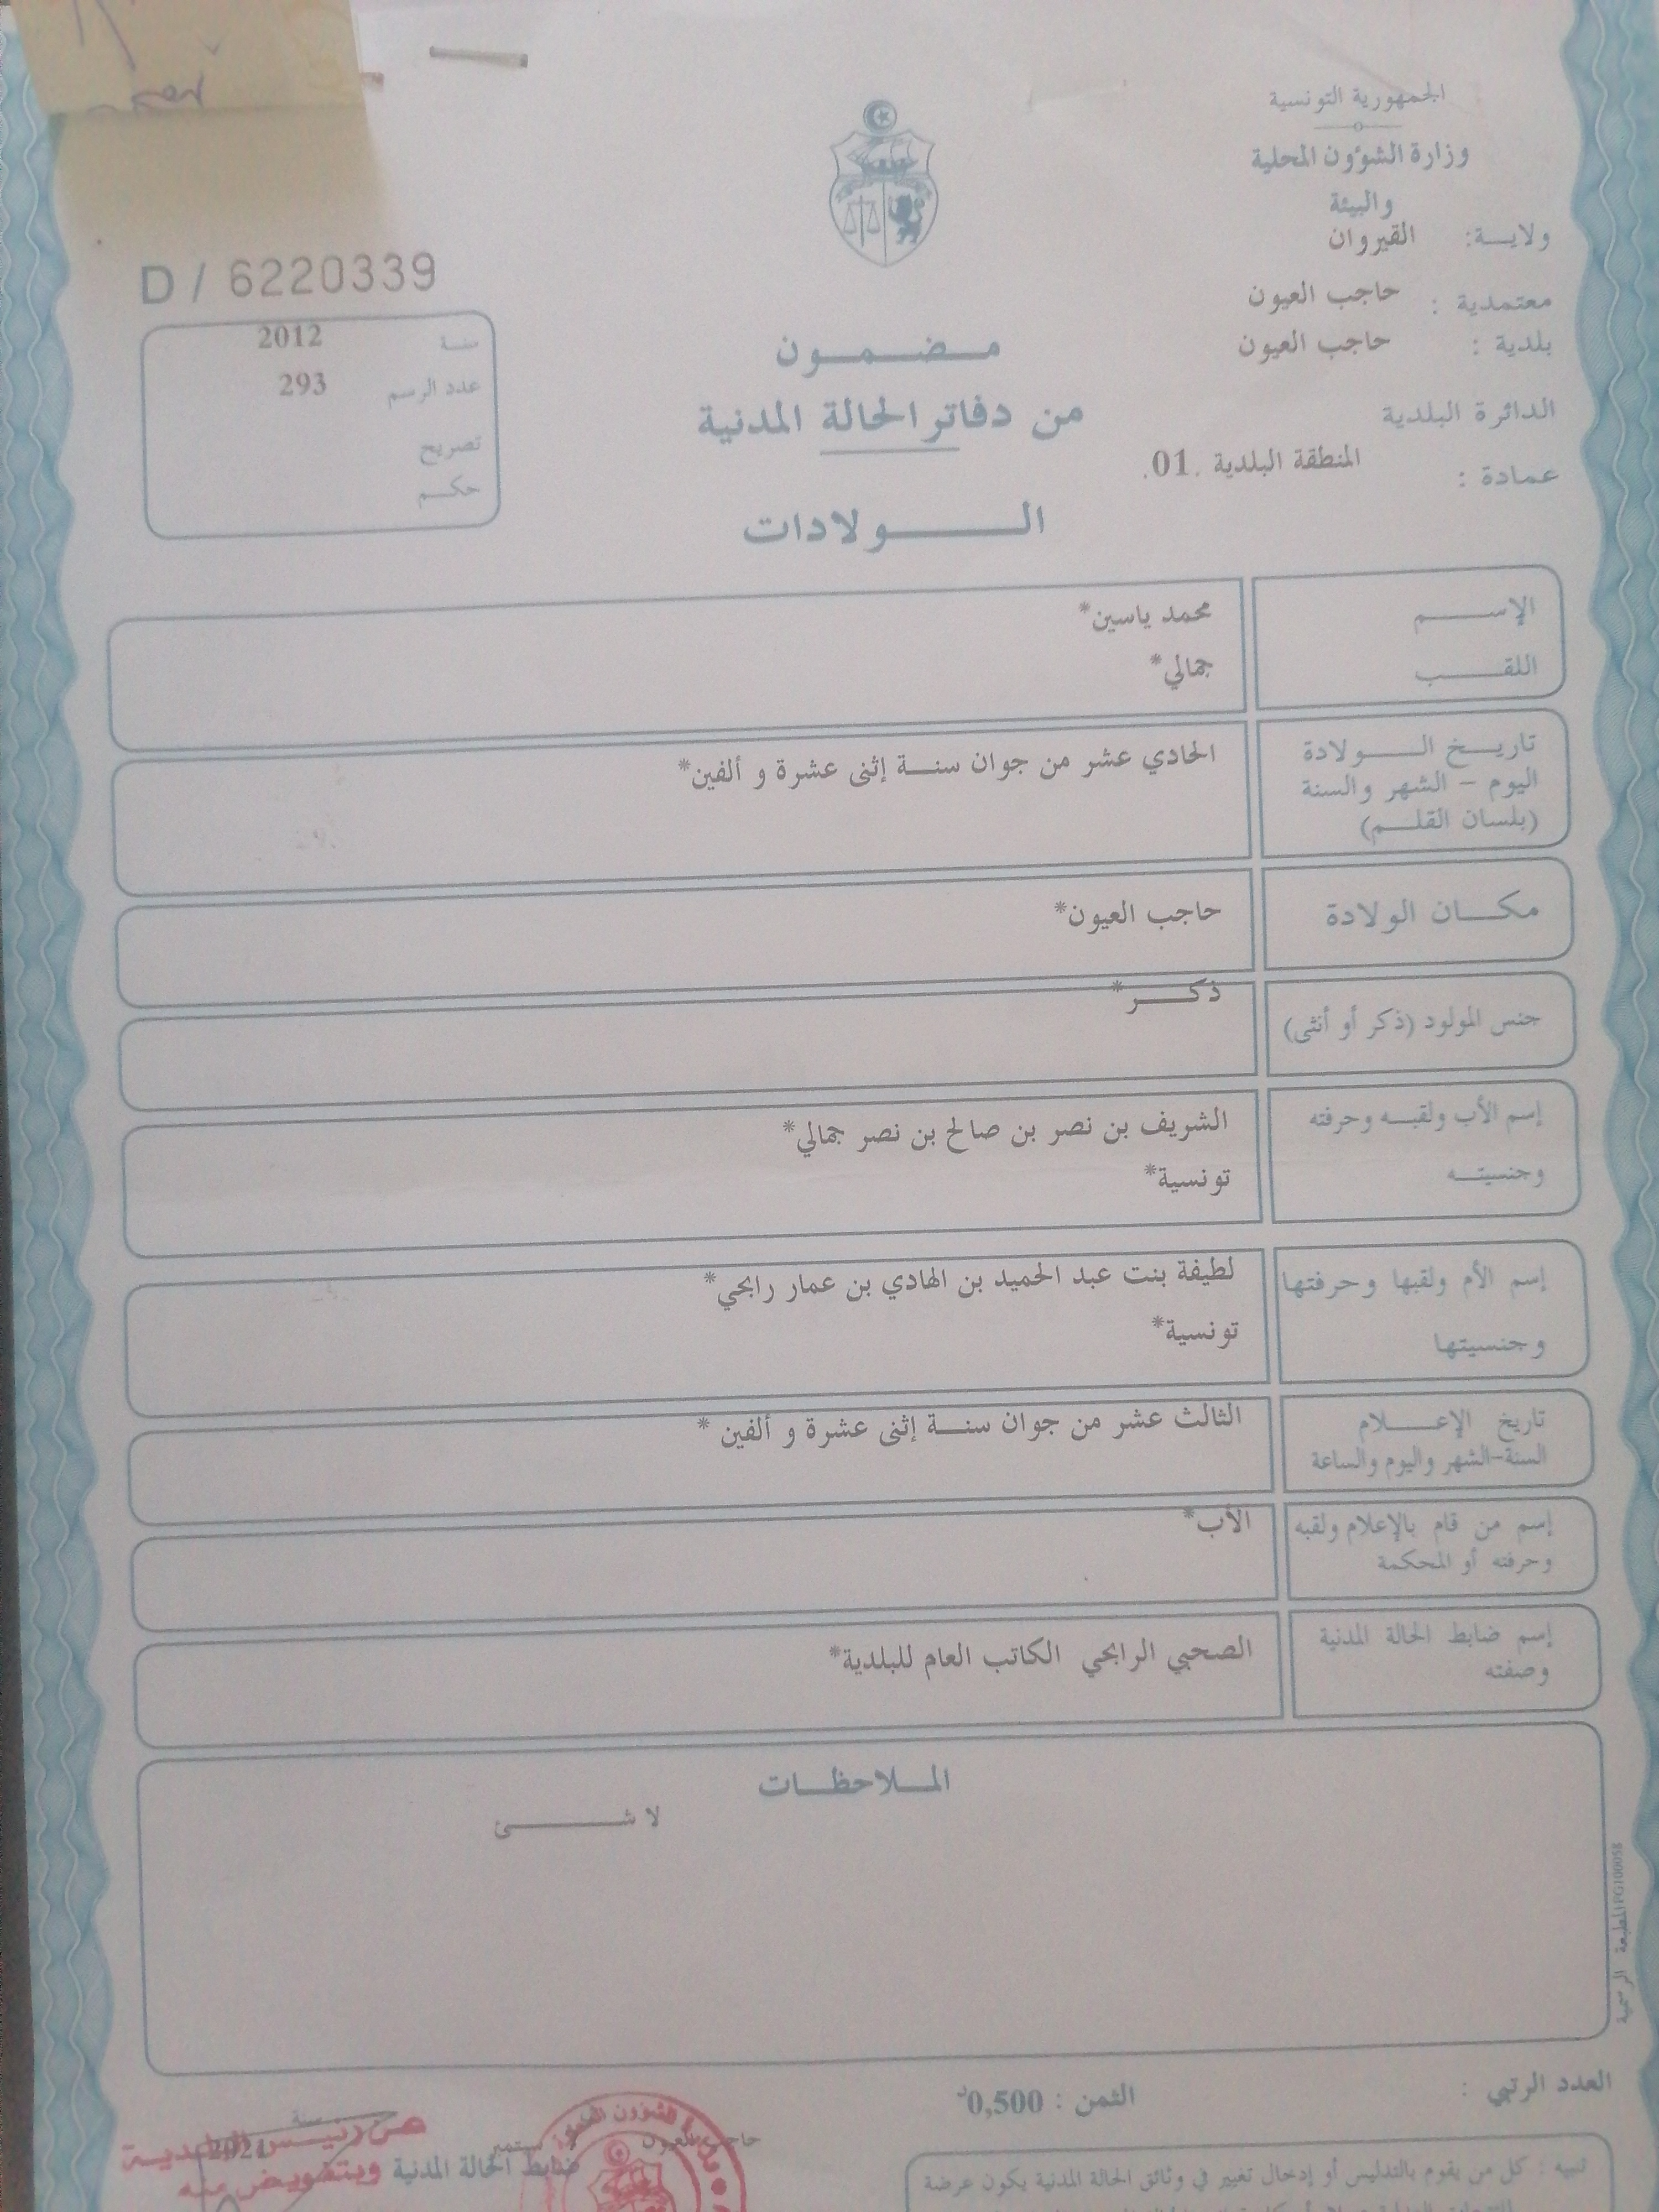 الجمهورية التونسية
وزارة الشؤون المحلية
والبيئة
ولايـــة: القيروان
معتمدية : حاجب العيون
بلدية : حاجب العيون
الدائرة البلدية
عمادة : المنطقة البلدية .01.
D / 6220339
سنـة 2012
عدد الرسم 293
تصريح
حكـــم
مـــضـــمـــون
من دفاتر الحالة المدنية
الـــــــولادات
الإســـــم محمد ياسين*
اللقـــــب جمالي*
تاريـــخ الـــــولادة الحادي عشر من جوان سنـــة إثنى عشرة و ألفين*
اليوم – الشهر والسنة
(بلسان القلـــم)
مكـــان الولادة حاجب العيون*
جنس المولود (ذكر أو أنثى) ذكـــر*
إسم الأب ولقبـــه وحرفته الشريف بن نصر بن صالح بن نصر جمالي*
وجنسيتـــه تونسية*
إسم الأم ولقبها وحرفتها لطيفة بنت عبد الحميد بن الهادي بن عمار رابحي*
وجنسيتها تونسية*
تاريخ الإعـــــلام الثالث عشر من جوان سنـــة إثنى عشرة و ألفين *
السنة-الشهر واليوم والساعة
إسم من قام بالإعلام ولقبه الأب*
وحرفته أو المحكمة
إسم ضابط الحالة المدنية الصحبي الرابحي الكاتب العام للبلدية*
وصفته
الملـــلاحظـــات
لا شـــــــئ
المطبعة الرسمية PG100058
العدد الرتبي :
الثمن : 0,500د
حاجب العيون
سبتمبر
سنة
2021
ضابط الحالة المدنية
عن رئيـس البلديـة
وبتفويض منه
تنبيه : كل من يقوم بالتدليس أو إدخال تغيير في وثائق الحالة المدنية يكون عرضة